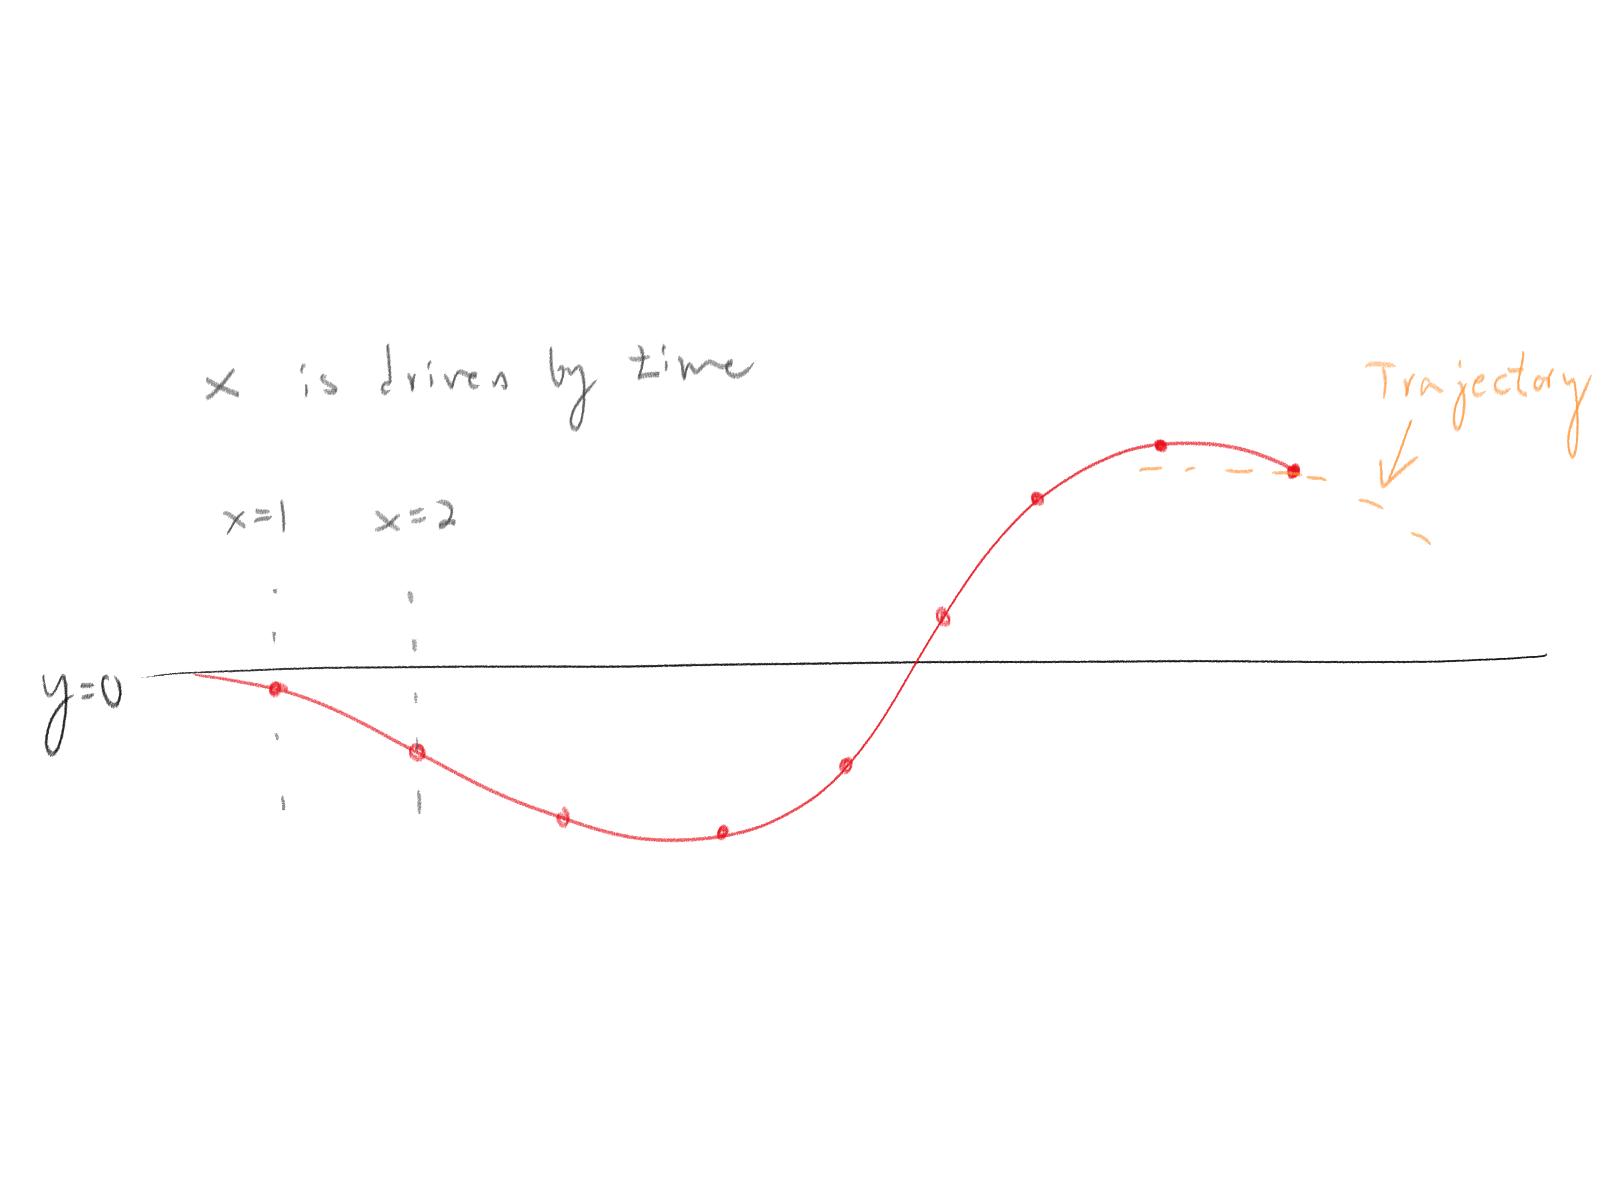 x is driven by time
Trajectory
x=1
x=2
y=0